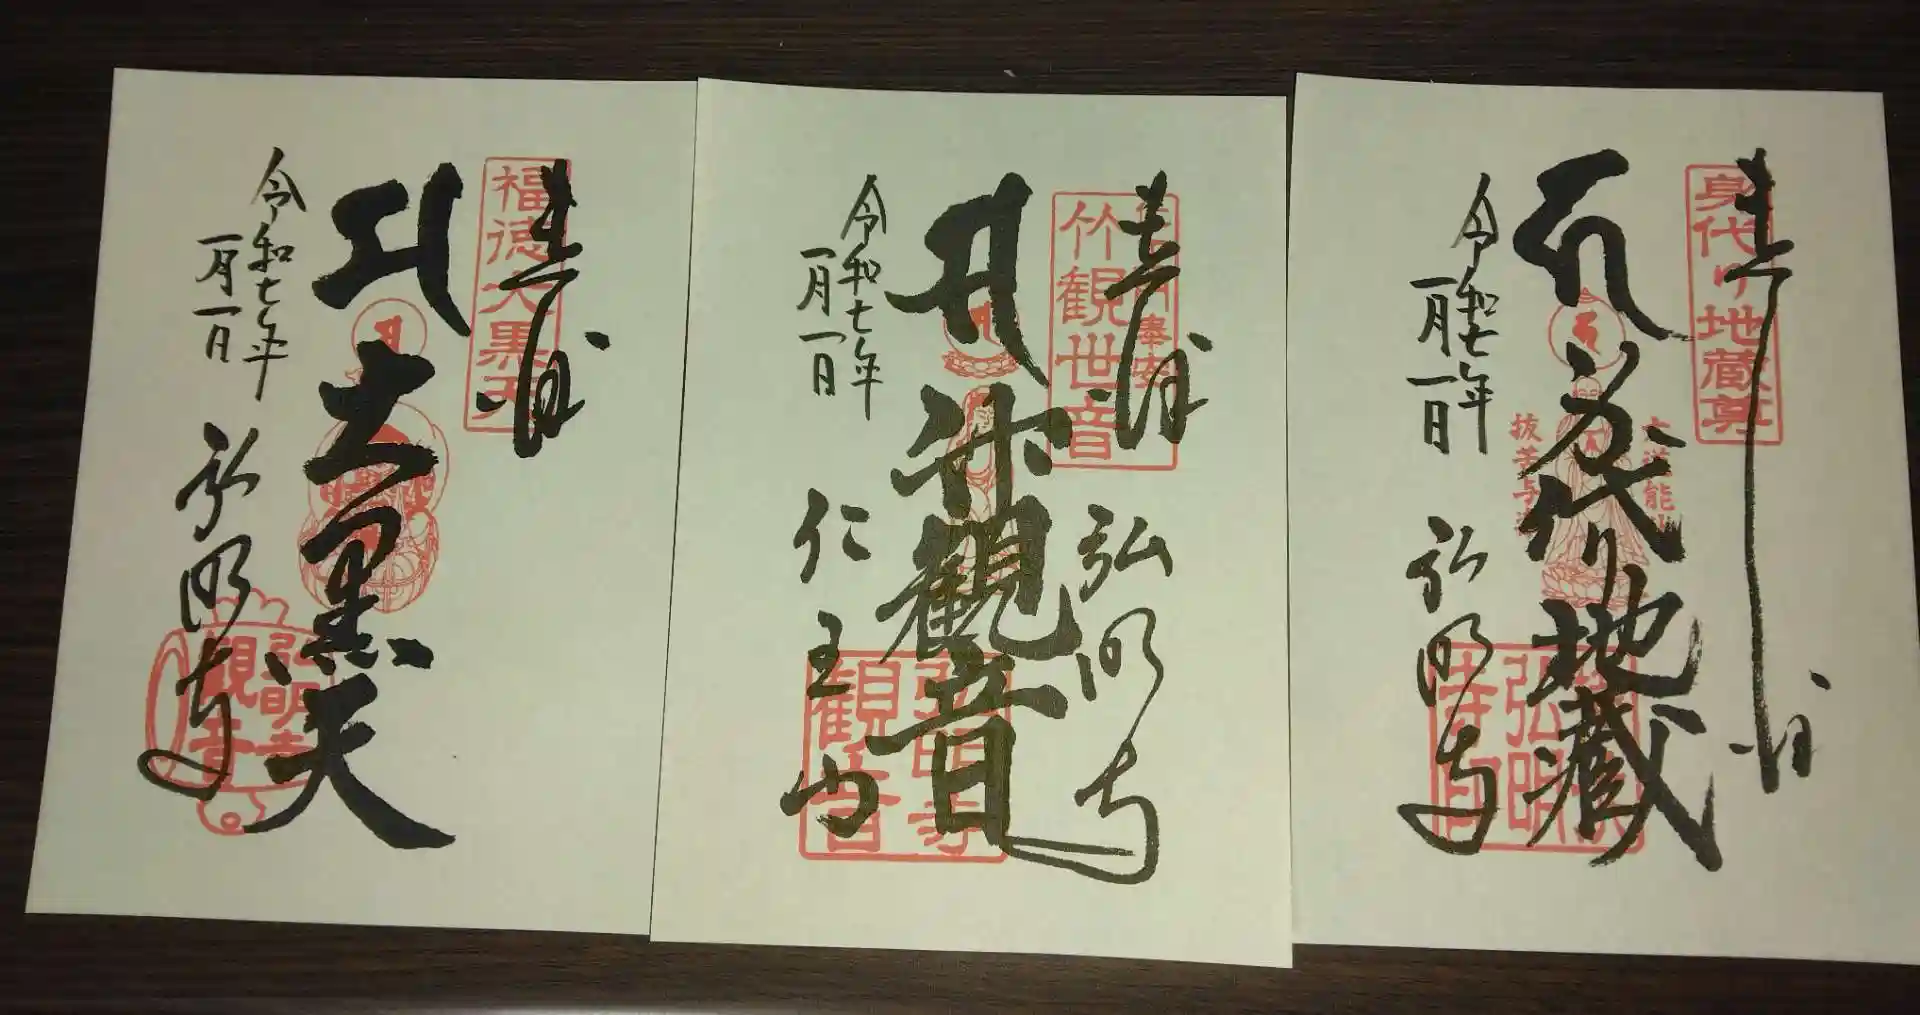 奉拝
福徳大黒天
大黒天
令和七年
一月一日
弘明寺
弘明寺
観音
奉拝
竹観世音
奉安
竹観音
弘明寺
令和七年
一月一日
仁王山
弘明寺
観音
奉拝
身代り地蔵尊
身代り地蔵
抜苦与
令和七年
一月一日
弘明寺
弘明